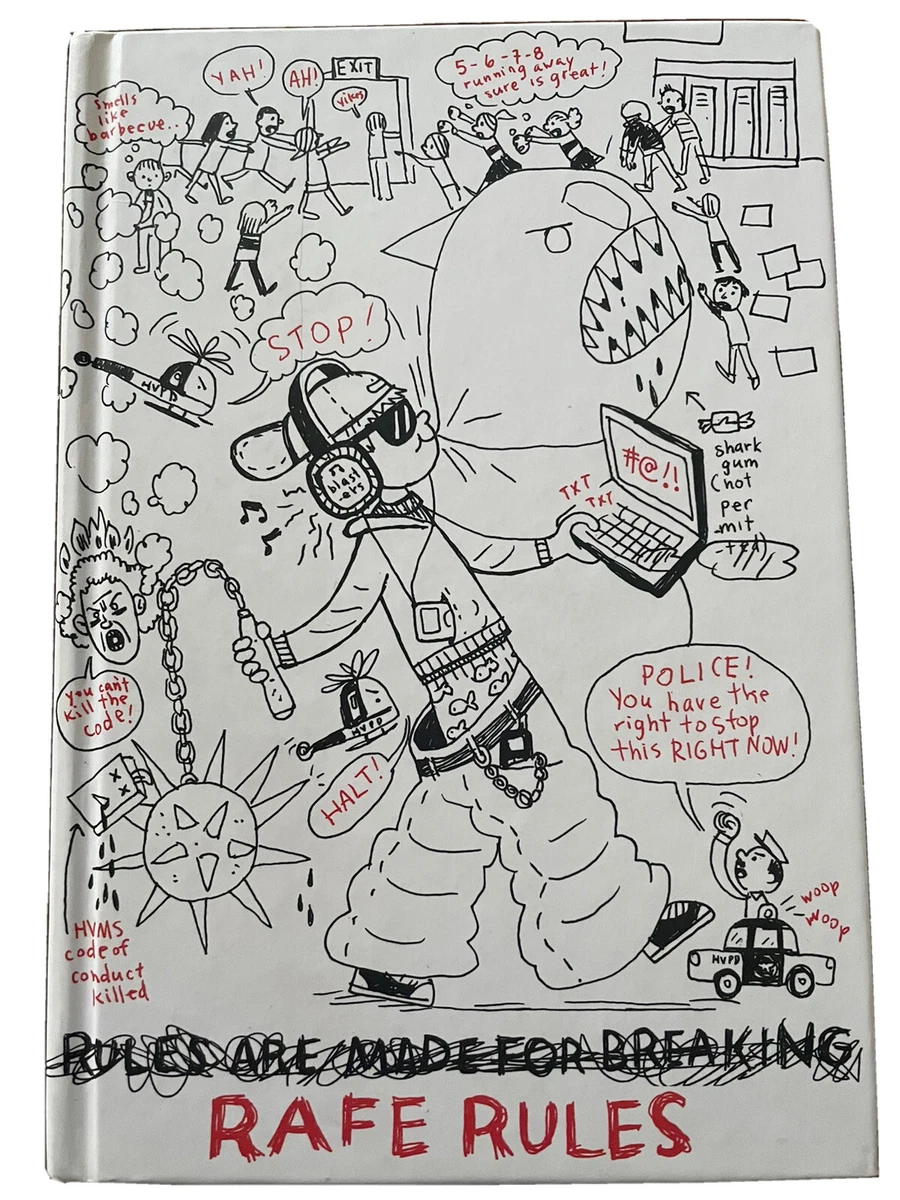 5-6-7-8
running away
sure is great!
YAH!
AH!
EXIT
Yikes
Smells
like
barbecue..
STOP!
HVPD
blast
oks
#@!!
TXT
TXT
shark
gum
(not
per
mit
-ted)
you can't
kill the
code!
HVPD
HALT!
POLICE!
You have the
right to stop
this RIGHT NOW!
woop
woop
HVPD
HVMS
code of
conduct
killed
RULES ARE MADE FOR BREAKING
RAFE RULES